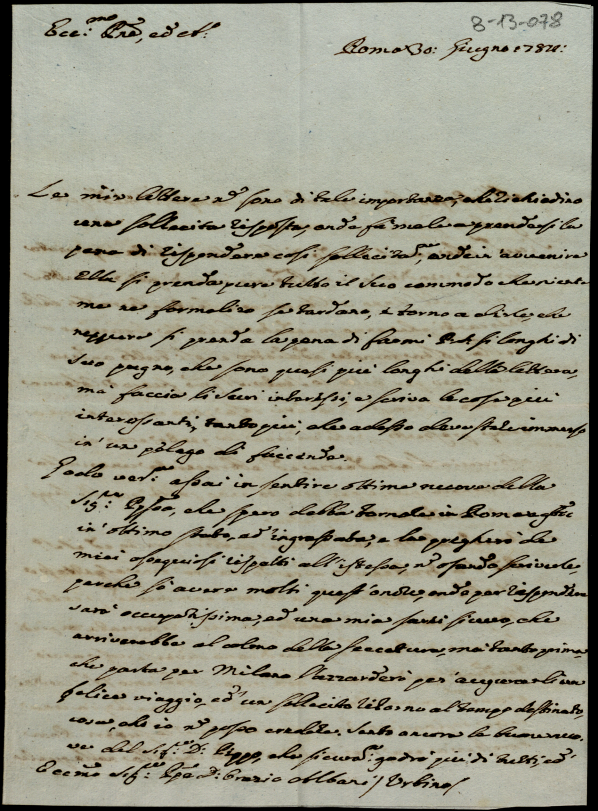 8-13-078
Ecc:mo Pne, ed Al:
Roma 30: Giugno 1784:
Le mie lettere nõ sono di tale importanza, che richiedino
una sollecita risposta, onde fà male a prendersi la
pena di rispondere così sollecitam:, onde in avvenire
Ella si prenda pure tutto il suo commodo che niente
me ne formalizo se tardano, e torno a dirle, che
neppure si prenda la pena di farmi P.S. si longhi di
suo pugno, che sono quasi più longhi della lettera,
mà faccia li suoi interessi, e scriva le cose più
interessanti, tanto più, che adesso deve stare immerso
in' un pelago di faccende.
Godo ver: assai in sentire ottime nuove della
Sig:ra Pñpssa, che spero debba tornare in Roma
in' ottimo stato, ed' ingrassata, e la pregherò de
miei ossequiosi rispetti all' istessa, nõ osando scriverle
perche sò avere molti quest' onore, onde per rispondere
sarà occupatissima, ed una mia sarti sicuro, che
arriverebbe al colmo della seccatura, mà tanto prima,
che parta per Milano l'azzarderò per' augurarli un
felice viaggio, ed' un sollecito ritorno al tempo destinato,
cosa, che io nõ posso credere. Sento ancora le buone nuo,
ve del Sig: D: Peppo, che sicuram: godrà più di tutti, ed'
Eccmo Sig:re Pñpe D: Orazio Albani / Urbino /